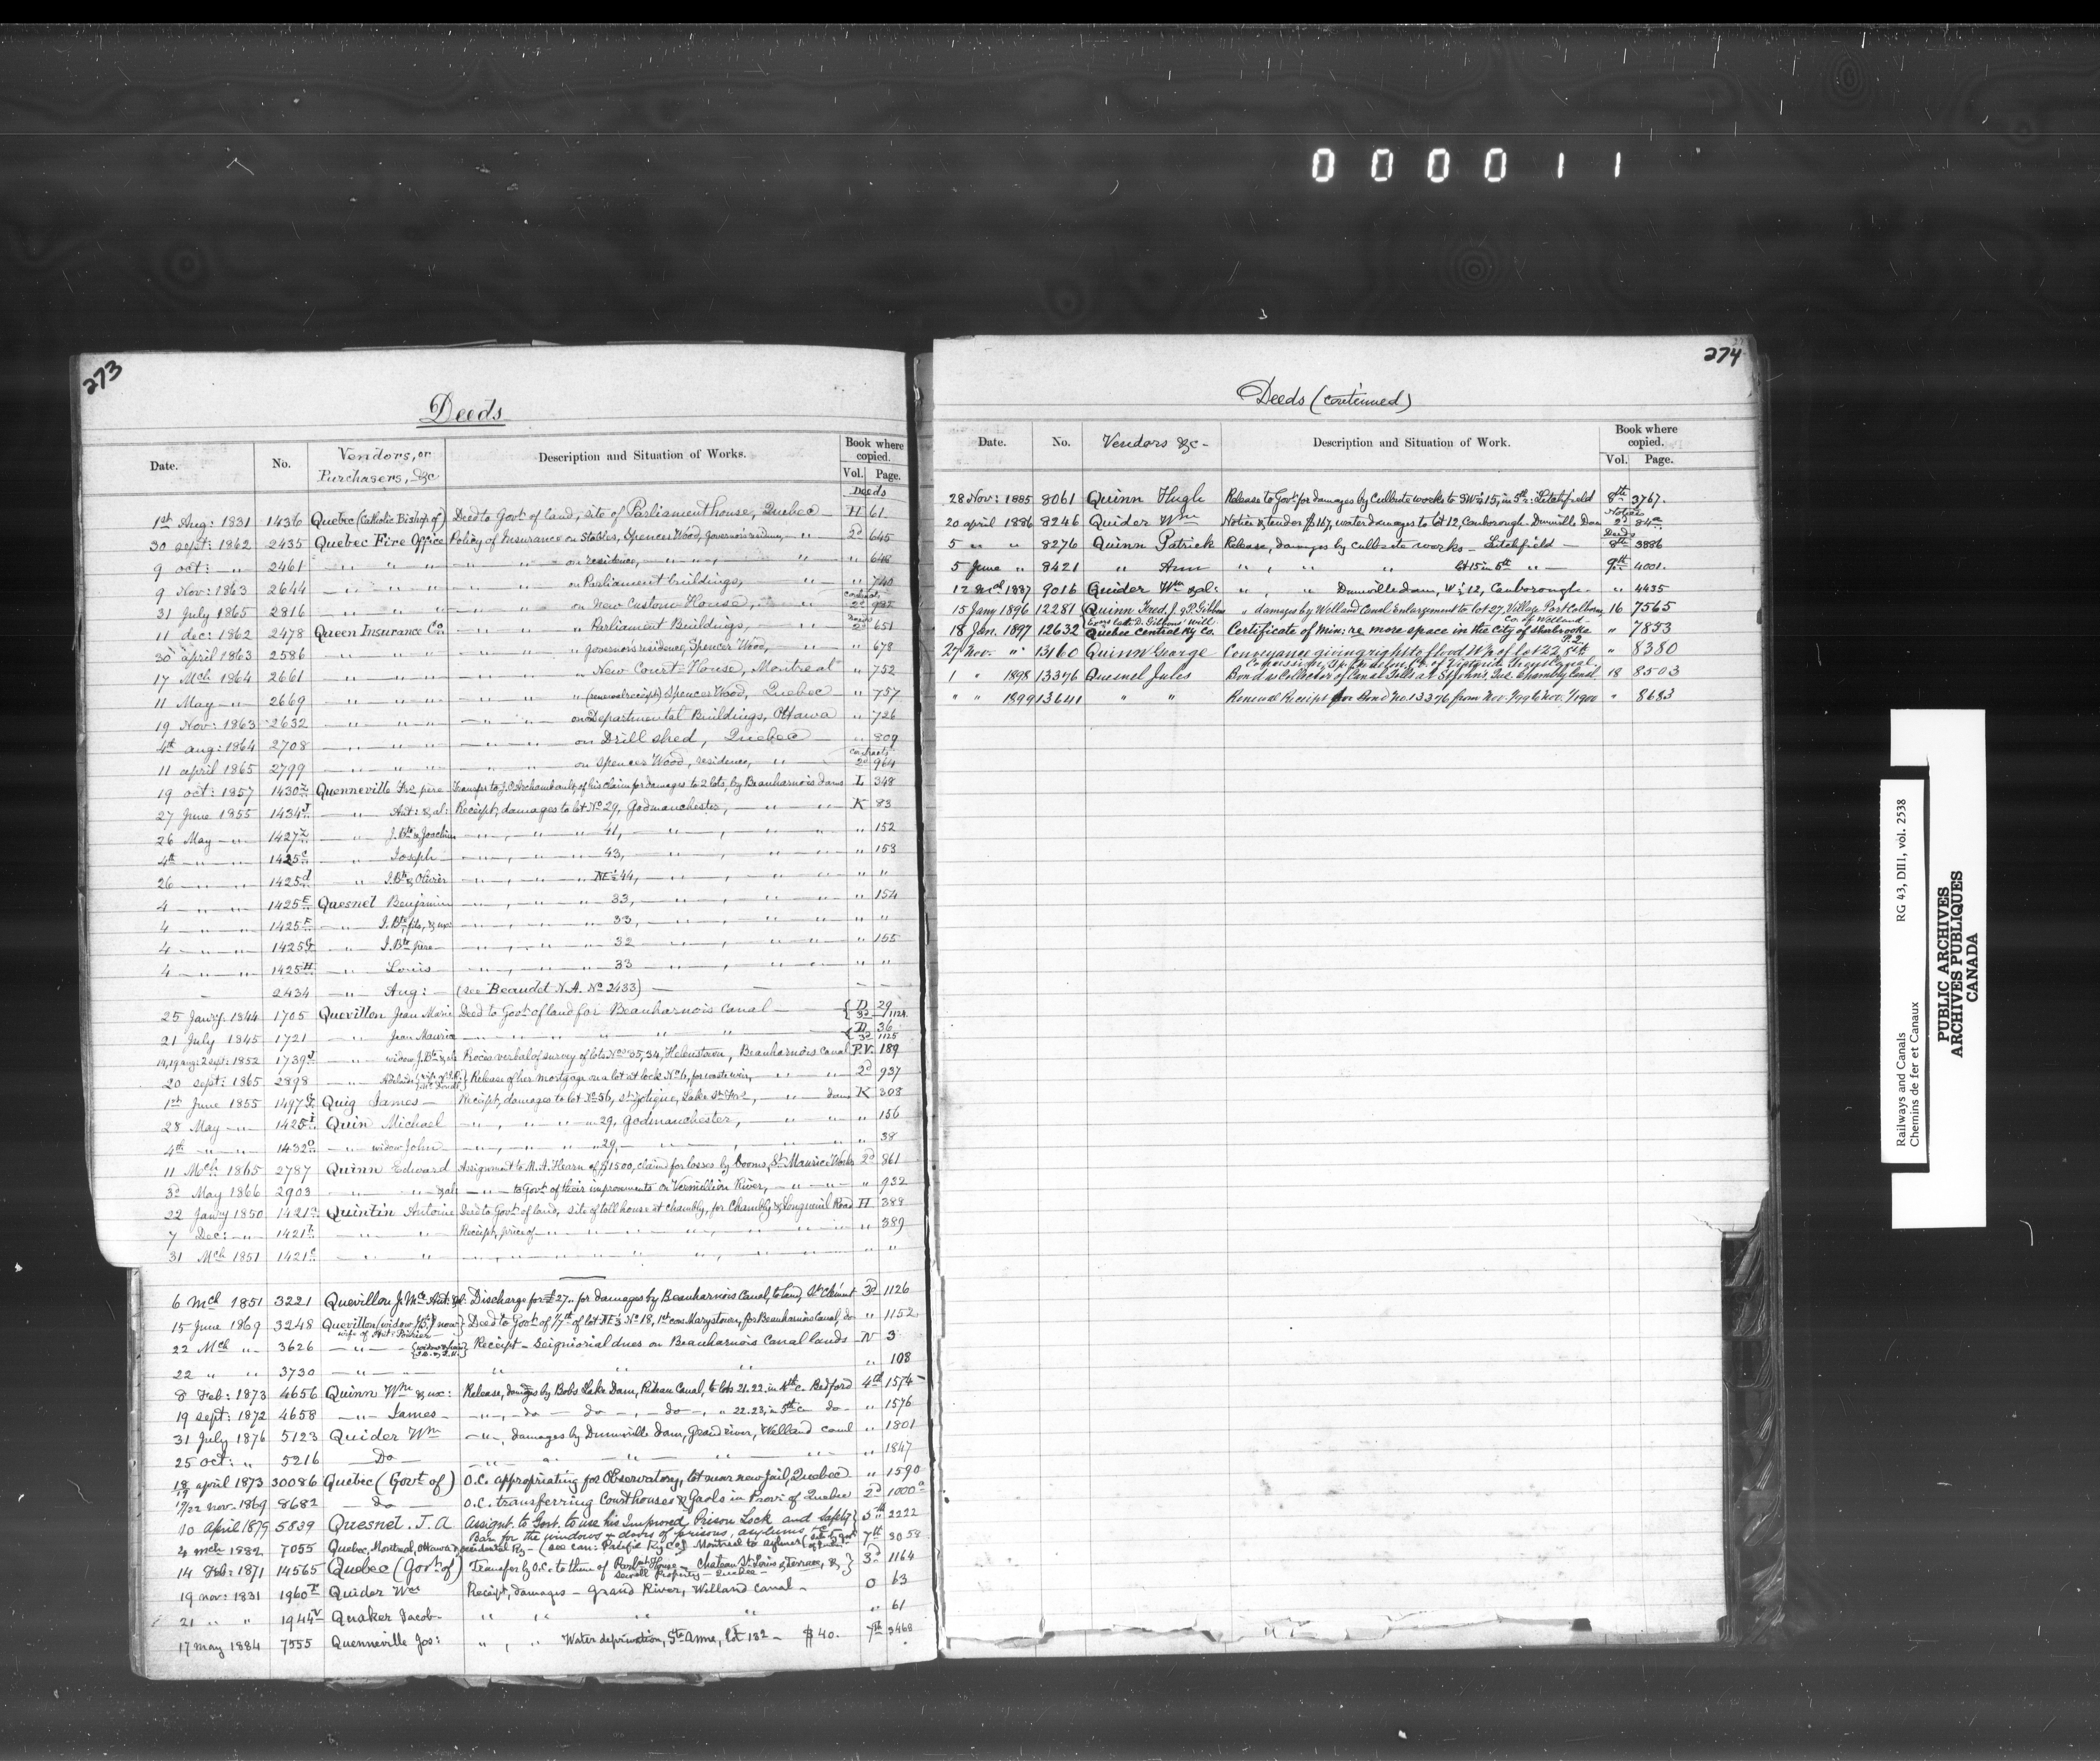 000011
273
Deeds
Date. No. Vendors, or Purchasers, &c Description and Situation of Works. Book where copied. Vol. Page.
Deeds
1st Aug: 1831 1436 Quebec (Catholic Bishop of) Deed to Govt of land, site of Parliament house, Quebec — H 61
30 sept: 1862 2435 Quebec Fire Office Policy of Insurance on Stables, Spencer Wood, Governor's residence, — " — 2d 645
9 oct: — " 2461 — " " " — " " " on residence, — " — " — , " " 646
9 Nov: 1863 2644 — " " " — " " " on Parliament buildings, — " — " 740
31 July 1865 2816 — " " " — " " " on New Custom House, — " Contracts 2d 935
11 dec: 1862 2478 Queen Insurance Co. — " " " " Parliament Buildings, — " — Deeds 2d 651
30 april 1863 2586 — " " " — " " " " Governor's residence, Spencer Wood, — " — " 678
17 Mch 1864 2661 — " " " — " " " " New Court-House, Montreal " 752
11 May — " 2669 — " " " — " " " " (renewal receipt) Spencer Wood, Quebec — " 757
19 Nov: 1863 2632 — " " " — " " " on Departmental Buildings, Ottawa " 726
4th aug: 1864 2708 — " " " — " " " on Drill shed, Quebec — " 809
11 april 1865 2799 — " " " — " " " on Spencer Wood, residence, — " Contracts 2d 964
19 oct: 1857 1430 Quenneville Frs. père Transfer to J.O. Archambault, of his claim for damages to 2 lots, by Beauharnois dams L 348
27 June 1855 1434 — " — Ant: & al: Receipt, damages to lot No 29, Godmanchester, — " — " K 83
26 May — " 1427 — " — J. Bte & Joachim — " — , — " — " 41, — " — , " " " 152
4th — " — " 1425c — " — Joseph — " — , — " — " 43, — " — , " " " 153
26 — " — " 1425d — " — J. Bte & Olivier — " — , — " — " NE½ 44, — " — , " " " "
4 — " — " 1425E Quesnel Benjamin — " — , — " — " 33, — " — , " " " 154
4 — " — " 1425F — " — J. Bte fils, & ux: — " — , — " — " 33, — " — , " " " "
4 — " — " 1425G — " — J. Bte père — " — , — " — " 32 — " — , " " " 155
4 — " — " 1425H — " — Louis — " — , — " — " 33 — " — , " " " "
2434 — " — Aug: — (see Beaudet N.A. No 2433) —
25 Janry. 1844 1705 Quevillon Jean Marie Deed to Govt of land for Beauharnois Canal — { D 29 3d 1124
21 July 1845 1721 — " — Jean Maurice — " " " " { D 36 3d 1125
14, 19 aug: 2 sept: 1852 1739 — " — widow J. Bte & als Procès verbal of survey of lots Nos 35, 34, Helenstown, Beauharnois Canal P.V. 189
20 sept: 1865 2898 — " — Adelaide Release of her mortgage on a lot at lock No 6, for waste weir, — " — " 2d 937
1st June 1855 1497 Quig James — Receipt, damages to lot No 56, St. Zotique, Lake St. Frs, — " — dams K 308
28 May — " 1425I Quin Michael — " — , — " — " " 29, Godmanchester, — " — " " 156
4th — " — " 1432c — " — widow John — " — , — " — " " 29, — " — " " 38
11 Mch 1865 2787 Quinn Edward Assignment to M.A. Hearn of $1500, claim for losses by booms, St. Maurice Works 2d 861
3d May 1866 2903 — " — " & als — " — to Govt of their improvements on Vermillion River, — " — " " 932
22 Janry 1850 1421a Quintin Antoine Deed to Govt of land, site of toll house at Chambly, for Chambly & Longueuil Road H 388
7 Dec: — " 1421b — " — " Receipt, price of — " — " " " , — " — " " 389
31 Mch 1851 1421c — " — " — " — " — " " " , — " — " " "
6 Mch 1851 3221 Quevillon J. Mce Ant: & al: Discharge for £27.. for damages by Beauharnois Canal, to land, St. Clément 3d 1126
15 June 1869 3248 Quevillon (widow J.B.) now wife of Ant: Poirier } Deed to Govt of 1/7th of lot NE½ No 18, 1st con Marystown, for Beauharnois Canal, do " 1152
22 Mch " 3626 — " — " — Receipt — Seigniorial dues on Beauharnois Canal lands — N 3
22 " " 3730 — " — " — " " " " 108
8 Feb: 1873 4656 Quinn Wm & ux: Release, damages by Bobs Lake Dam, Rideau Canal, to lots 21.22. in 4th c. Bedford 4th 1574
19 sept: 1872 4658 — " — James — — " — , — do — do — , — do — , " 22.23, in 5th c — do — " 1576
31 July 1876 5123 Quider Wm — " — , damages by Dunnville Dam, Grand river, Welland canal " 1801
25 oct: " 5216 — Do — — " — " — " — " — " " 1847
18/19 april 1873 30086 Quebec (Govt. of) O.C. appropriating for Observatory, lot near new jail, Quebec " 1590
17/22 nov. 1869 8682 — do — O.C. transferring Court houses & Gaols in Prov: of Quebec 2d 1000a
10 April 1879 5839 Quesnel. J. A Assignt. to Govt. to use his Improved Prison Lock and Safety Bar for the windows & doors of prisons, asylums, &c } 5th 2222
4 mch 1882 7055 Quebec, Montreal, Ottawa & occidental Ry — (see can: Pacific Ry Co.) Montreal to Aylmer 7th 3058
14 Feb: 1871 14565 Quebec (Govt. of) Transfer by O.C. to them of Parlmt. House — Chateau St. Louis & Terrace, &, Sewell Property — Quebec — } 3d 1164
19 nov: 1831 1960 Quider Wm Receipt, damages — Grand River, Welland Canal — O 63
21 " " 1944 Quaker Jacob — " " " " " 61
17 may 1884 7555 Quenneville Jos: " , " Water deprivation, Ste. Anne, lot 182 — $40. 7th 3468
274
Deeds (continued)
Date. No. Vendors &c — Description and Situation of Work. Book where copied. Vol. Page.
28 Nov: 1885 8061 Quinn Hugh Release to Govt for damages by Culbute works to SW½ 15, in 5th: Litchfield 8th 3767.
20 april 1886 8246 Quider Wm Notice & tender $167, water damages to lot 12, Canborough. Dunnville Dam Notices 2d 84a
5 " " 8276 Quinn Patrick Release, damages by Culbute works — Litchfield — Deeds 8th 3886
5 June " 8421 " Ann " , " " " lot 15 in 5th " — 9th 4001.
12 Mch 1887 9016 Quider Wm & al: " , " " Dunnville Dam, W½ 12, Canborough. " 4435
15 Jany 1896 12281 Quinn Fred. J. & P. Gibbons Exors late D. Gibbons' Will " damages by Welland Canal Enlargement to lot 27. Village Port Colborne, Co. of Welland 16 7565
18 Jan. 1897 12632 Quebec Central Ry Co. Certificate of Min: re more space in the City of Sherbrooke " 7853
27 Nov. " 13160 Quinn George Conveyance giving right to flood W½ of lot 22 5th Concession, Tp. Co. of Victoria Trent Canal. " 8380
1 " 1898 13376 Quesnel Jules Bond as Collector of Canal Tolls at St Johns, Que. Chambly Canal 18 8503
" " 1899 13641 " " Renewal Receipt for Bond No. 13376 from Nov. 1/99 to Nov. 1/1900 " 8683
Railways and Canals RG 43, DIII, vol. 2538
Chemins de fer et Canaux
PUBLIC ARCHIVES
ARCHIVES PUBLIQUES
CANADA